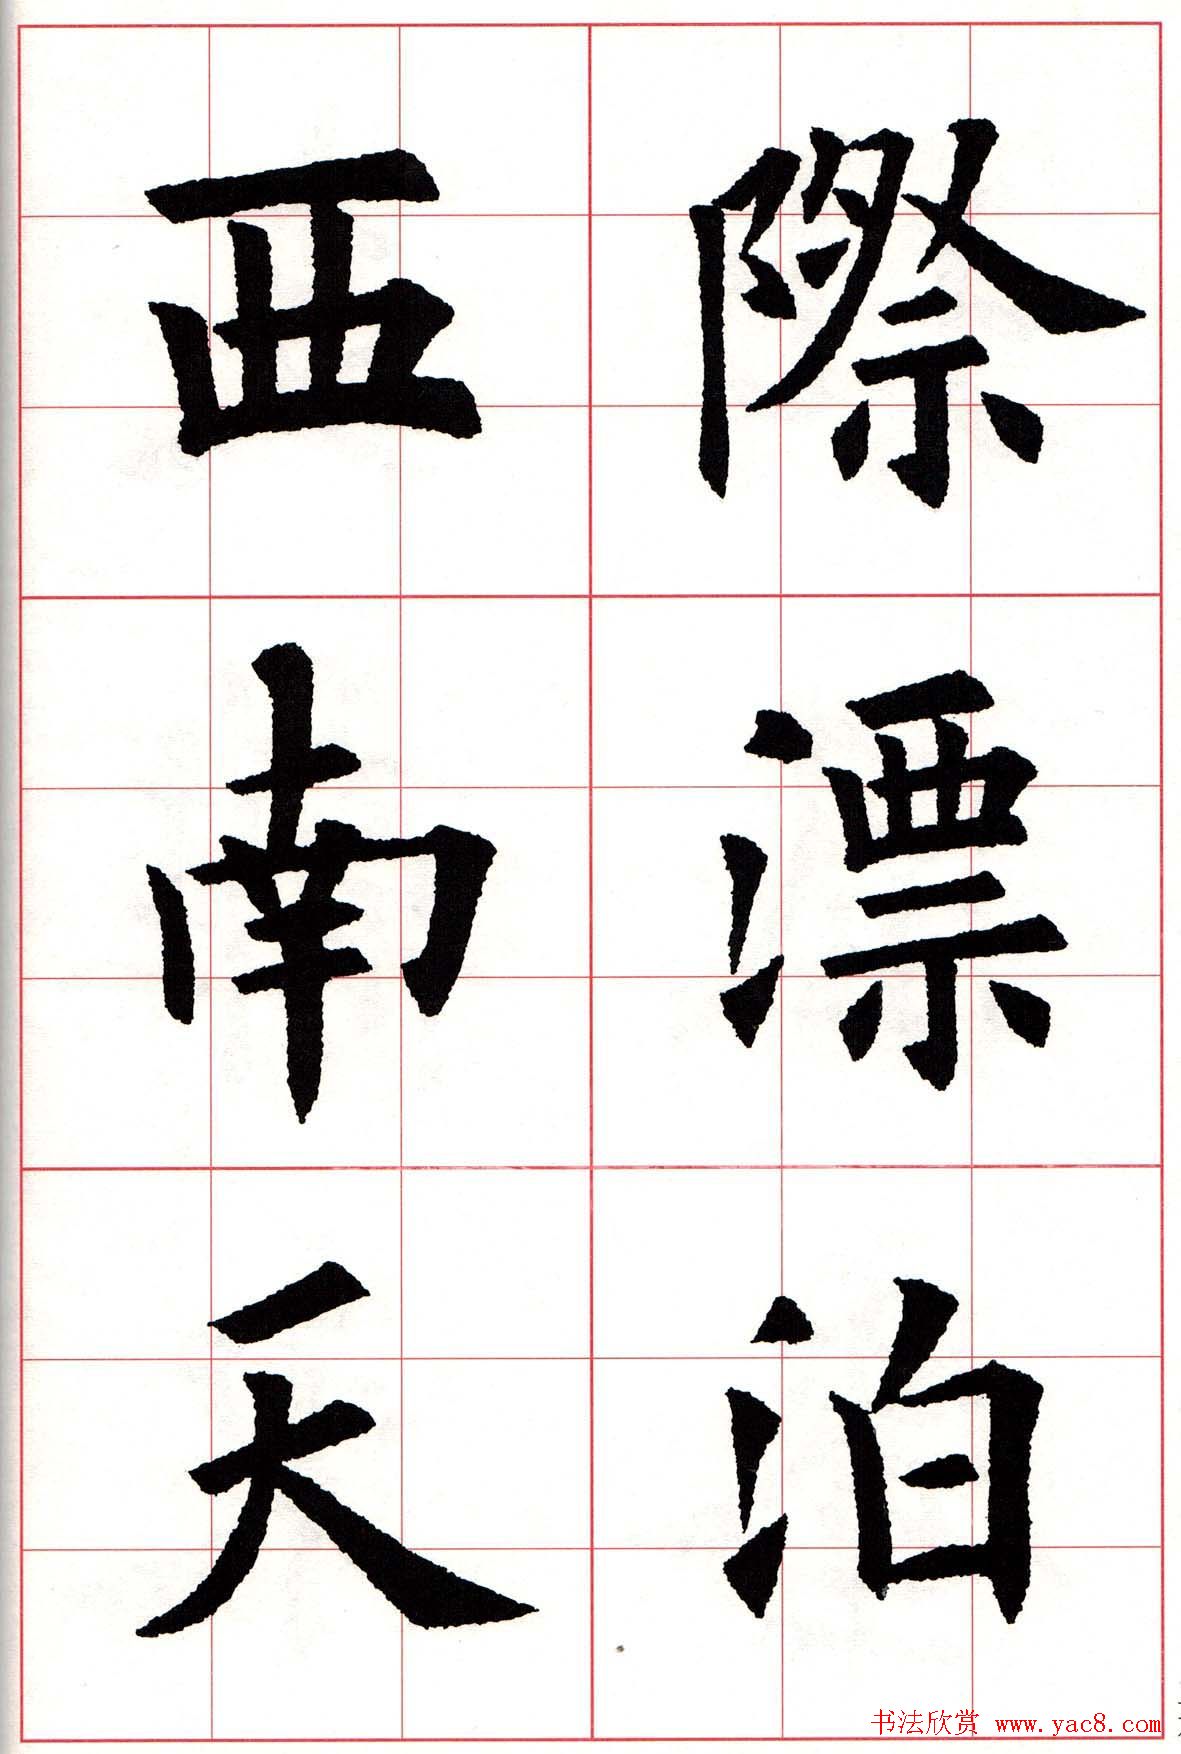 際漂泊
西南天
书法欣赏 www.yac8.com